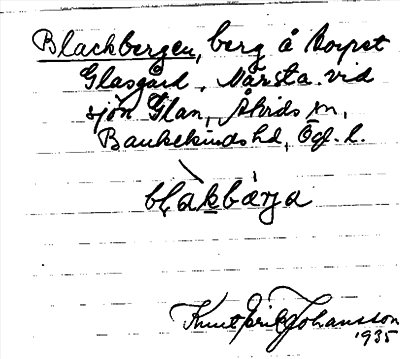 Blackbergen, berg å torpet
Glasgård, Närsta vid
sjön Glan, Åtvids sn,
Bankekinds hd, Ög. l.
blakbärja
Knut Erik Johansson
1935